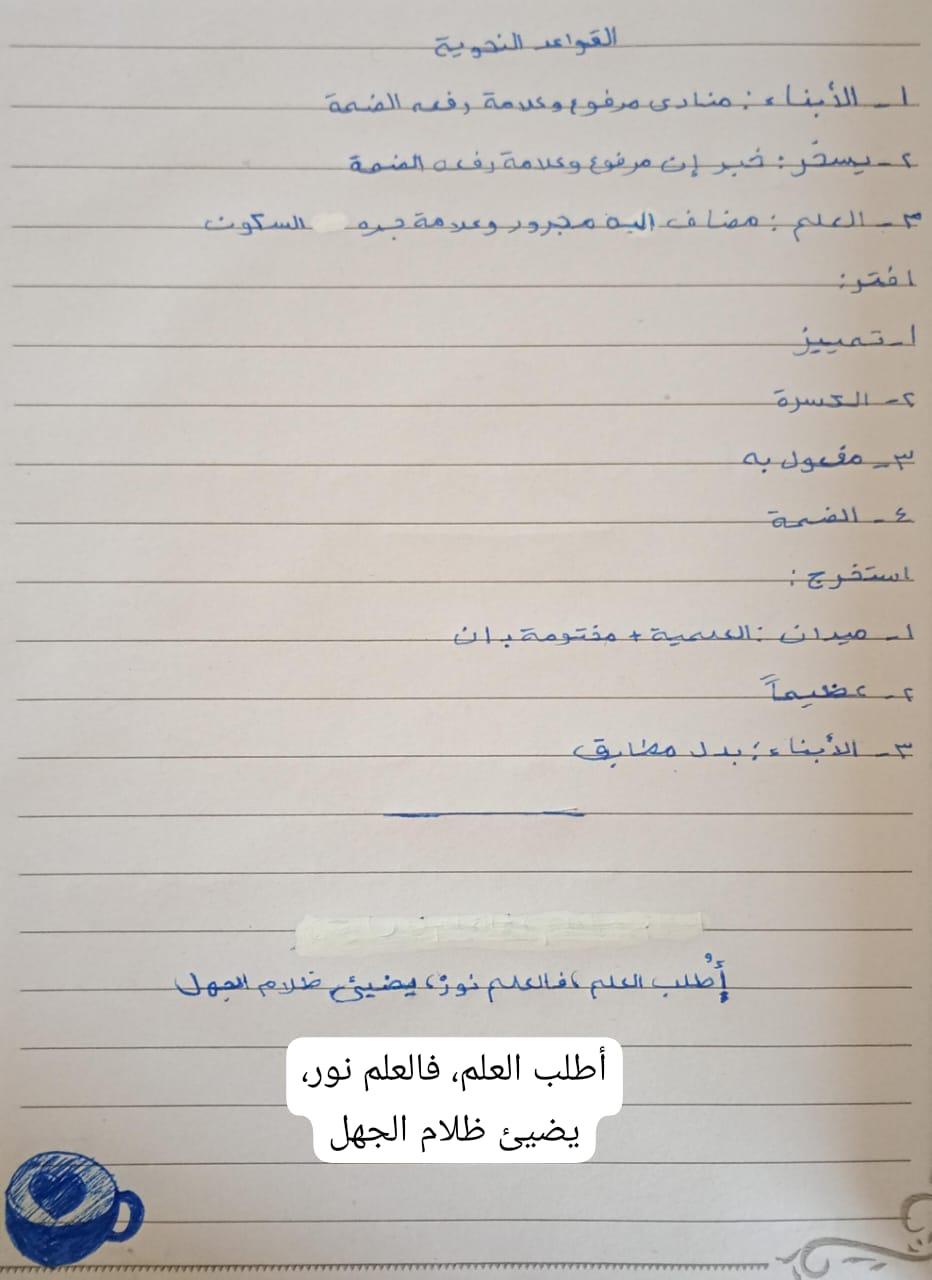 القواعد النحوية
١- الأبناء: منادى مرفوع وعلامة رفعه الضمة
٢- يسخّر: خبر إن مرفوع وعلامة رفعه الضمة
٣- العلم: مضاف اليه مجرور وعلامة جره السكون
اختر:
١- تمييز
٢- الكسرة
٣- مفعول به
٤- الضمة
استخرج:
١- ميدان: العلمية + مختومة بان
٢- عظيماً
٣- الأبناء: بدل مطابق
أُطلب العلم، فالعلم نورٌ، يضيئ ظلام الجهل
أطلب العلم، فالعلم نور،
يضيئ ظلام الجهل